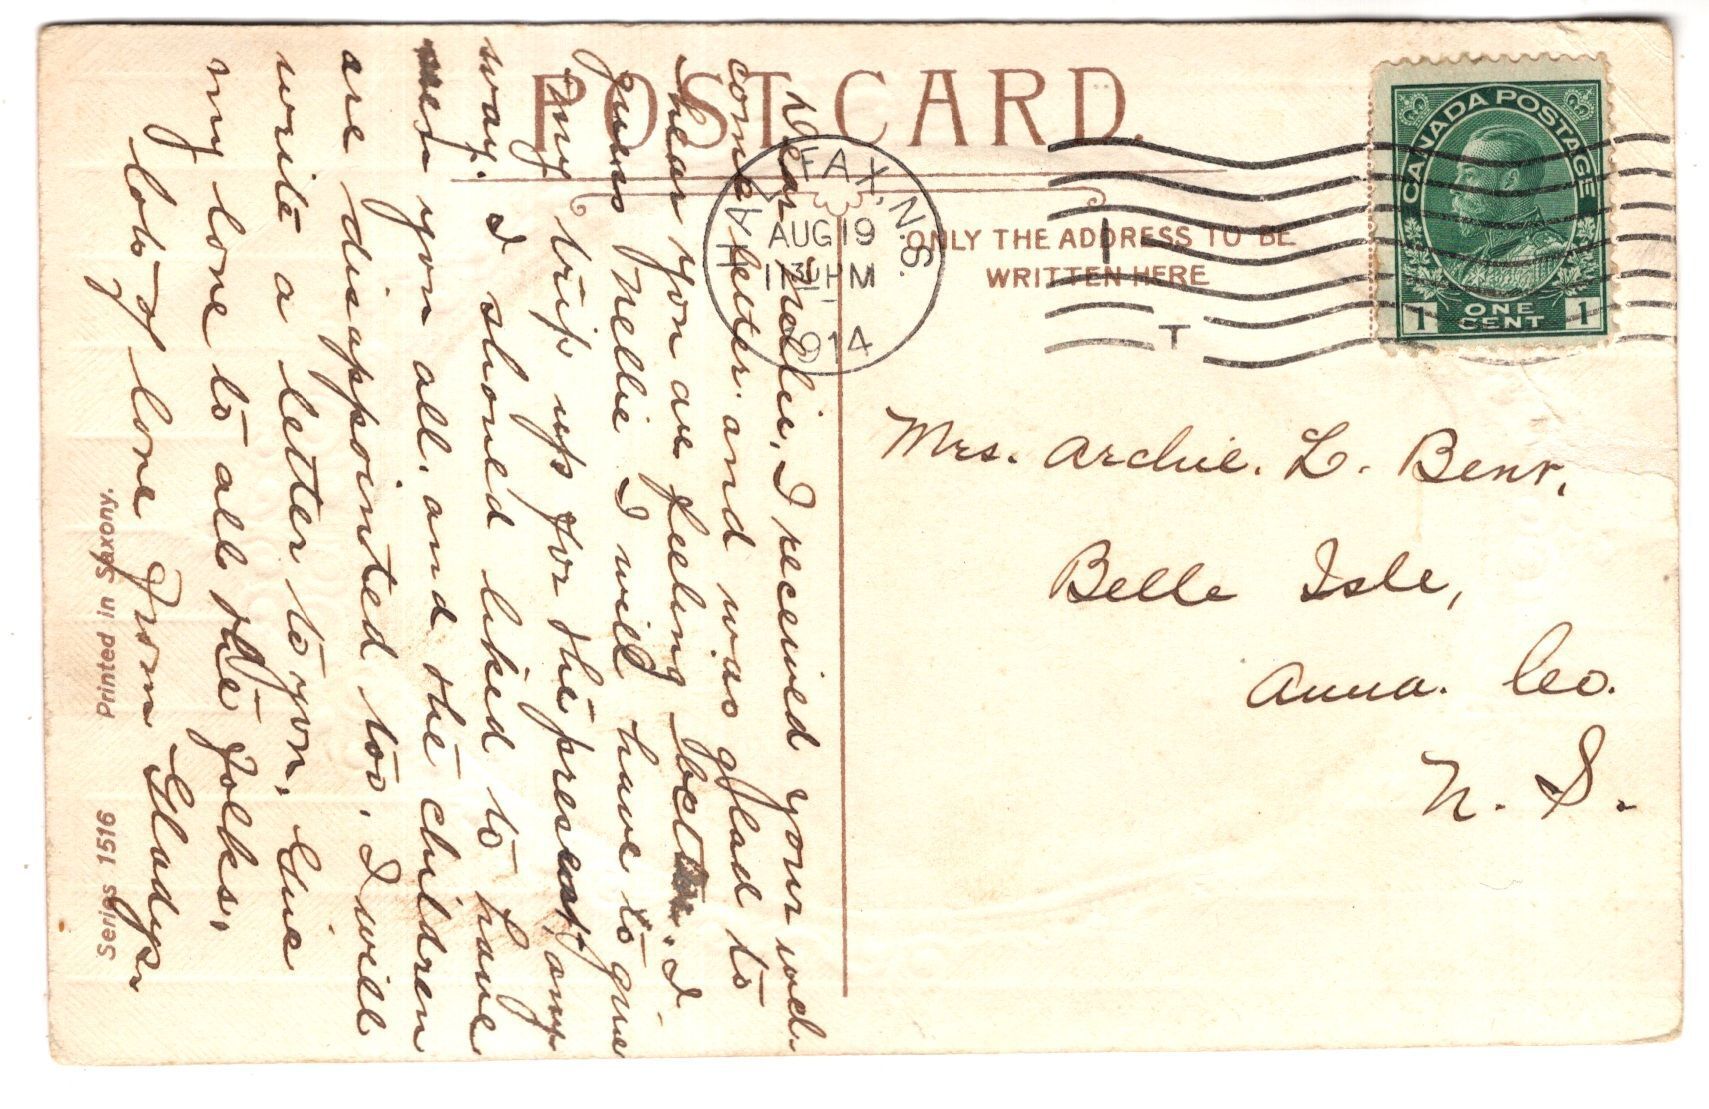 POST CARD.
ONLY THE ADDRESS TO BE
WRITTEN HERE
HALIFAX, N.S.
AUG 19
1130 PM
1914
T
CANADA POSTAGE
1 ONE CENT 1
Dear Nellie, I received your wel-
come letter and was glad to
hear you are feeling better. I
guess Nellie I will have to give
my trip up for the present any
way. I shoned liked to have
seen you all, and the children
are disappointed too. I will
write a letter to you. Give
my love to all the folks,
lots of love From Gladys
Mrs. Archie. L. Bent,
Belle Isle,
Anna. Co.
N. S.
Series 1516 Printed in Saxony.